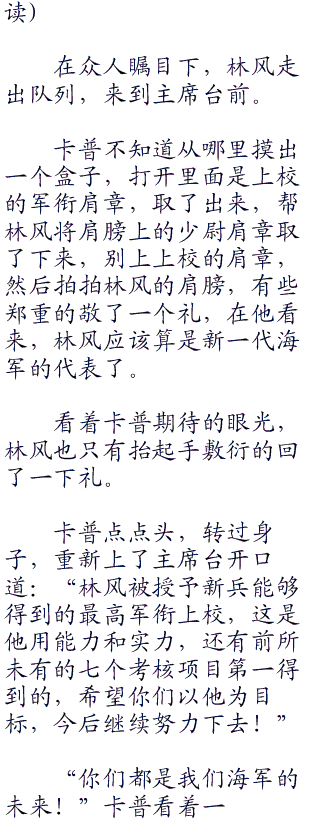 读）
在众人瞩目下，林风走
出队列，来到主席台前。
卡普不知道从哪里摸出
一个盒子，打开里面是上校
的军衔肩章，取了出来，帮
林风将肩膀上的少尉肩章取
了下来，别上上校的肩章，
然后拍拍林风的肩膀，有些
郑重的敬了一个礼，在他看
来，林风应该算是新一代海
军的代表了。
看着卡普期待的眼光，
林风也只有抬起手敷衍的回
了一下礼。
卡普点点头，转过身
子，重新上了主席台开口
道：“林风被授予新兵能够
得到的最高军衔上校，这是
他用能力和实力，还有前所
未有的七个考核项目第一得
到的，希望你们以他为目
标，今后继续努力下去！”
“你们都是我们海军的
未来！”卡普看着一